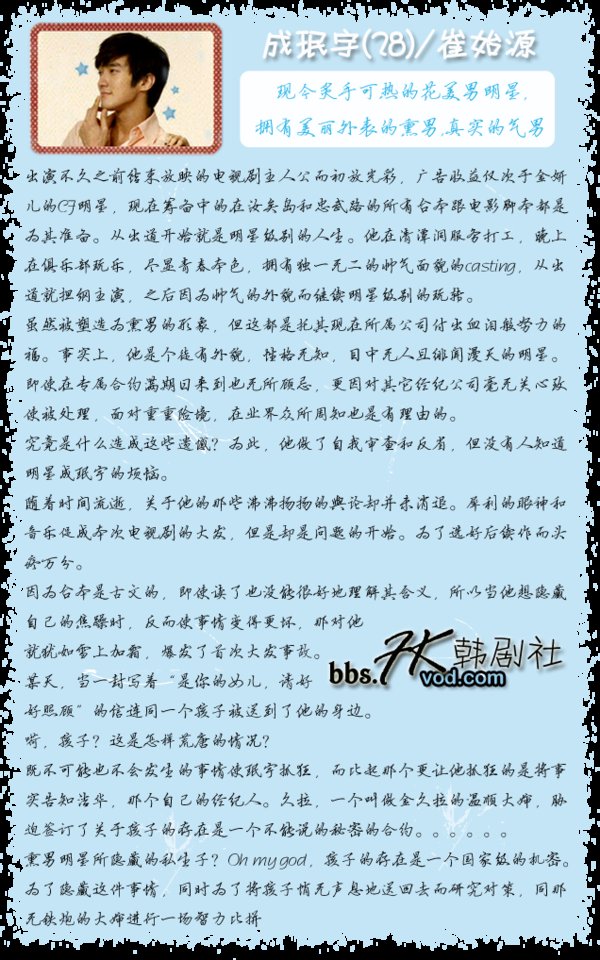 成珉宇(28)/崔始源
现今炙手可热的花美男明星,
拥有美丽外表的熏男,真实的气男
出演不久之前结束放映的电视剧主人公而初放光彩，广告收益仅次于金妍
儿的CF明星，现在筹备中的在汝矣岛和忠武路的所有台本跟电影脚本都是
为其准备。从出道开始就是明星级别的人生。他在清潭洞服务打工，晚上
在俱乐部玩乐，尽显青春本色，拥有独一无二的帅气面貌的casting，从出
道就担纲主演，之后因为帅气的外貌而继续明星级别的玩转。
虽然被塑造为熏男的形象，但这都是托其现在所属公司付出血泪般努力的
福。事实上，他是个徒有外貌，性格无知，目中无人且绯闻漫天的明星。
即使在专属合约满期日来到也无所顾忌，更因对其它经纪公司毫无关心致
使被处理，面对重重险境，在业界众所周知也是有理由的。
究竟是什么造成这些遗憾？为此，他做了自我审查和反省，但没有人知道
明星成珉宇的烦恼。
随着时间流逝，关于他的那些沸沸扬扬的舆论却并未消退。犀利的眼神和
音乐促成本次电视剧的大发，但是却是问题的开始。为了选好后续作而头
疼万分。
因为台本是古文的，即使读了也没能很好地理解其含义，所以当他想隐藏
自己的焦躁时，反而使事情变得更坏，那对他
就犹如雪上加霜，爆发了首次大发事故。
某天，当一封写着“是你的女儿，请好
好照顾”的信连同一个孩子被送到了他的身边。
嗬，孩子？这是怎样荒唐的情况？
既不可能也不会发生的事情使珉宇抓狂，而比起那个更让他抓狂的是将事
实告知洁华，那个自己的经纪人。久拉，一个叫做金久拉的温顺大婶，胁
迫签订了关于孩子的存在是一个不能说的秘密的合约。。。。。。
熏男明星所隐藏的私生子？Oh my god，孩子的存在是一个国家级的机密。
为了隐藏这件事情，同时为了将孩子悄无声息地送回去而研究对策，同那
无铁炮的大婶进行一场智力比拼
bbs.TK韩剧社
vod.com